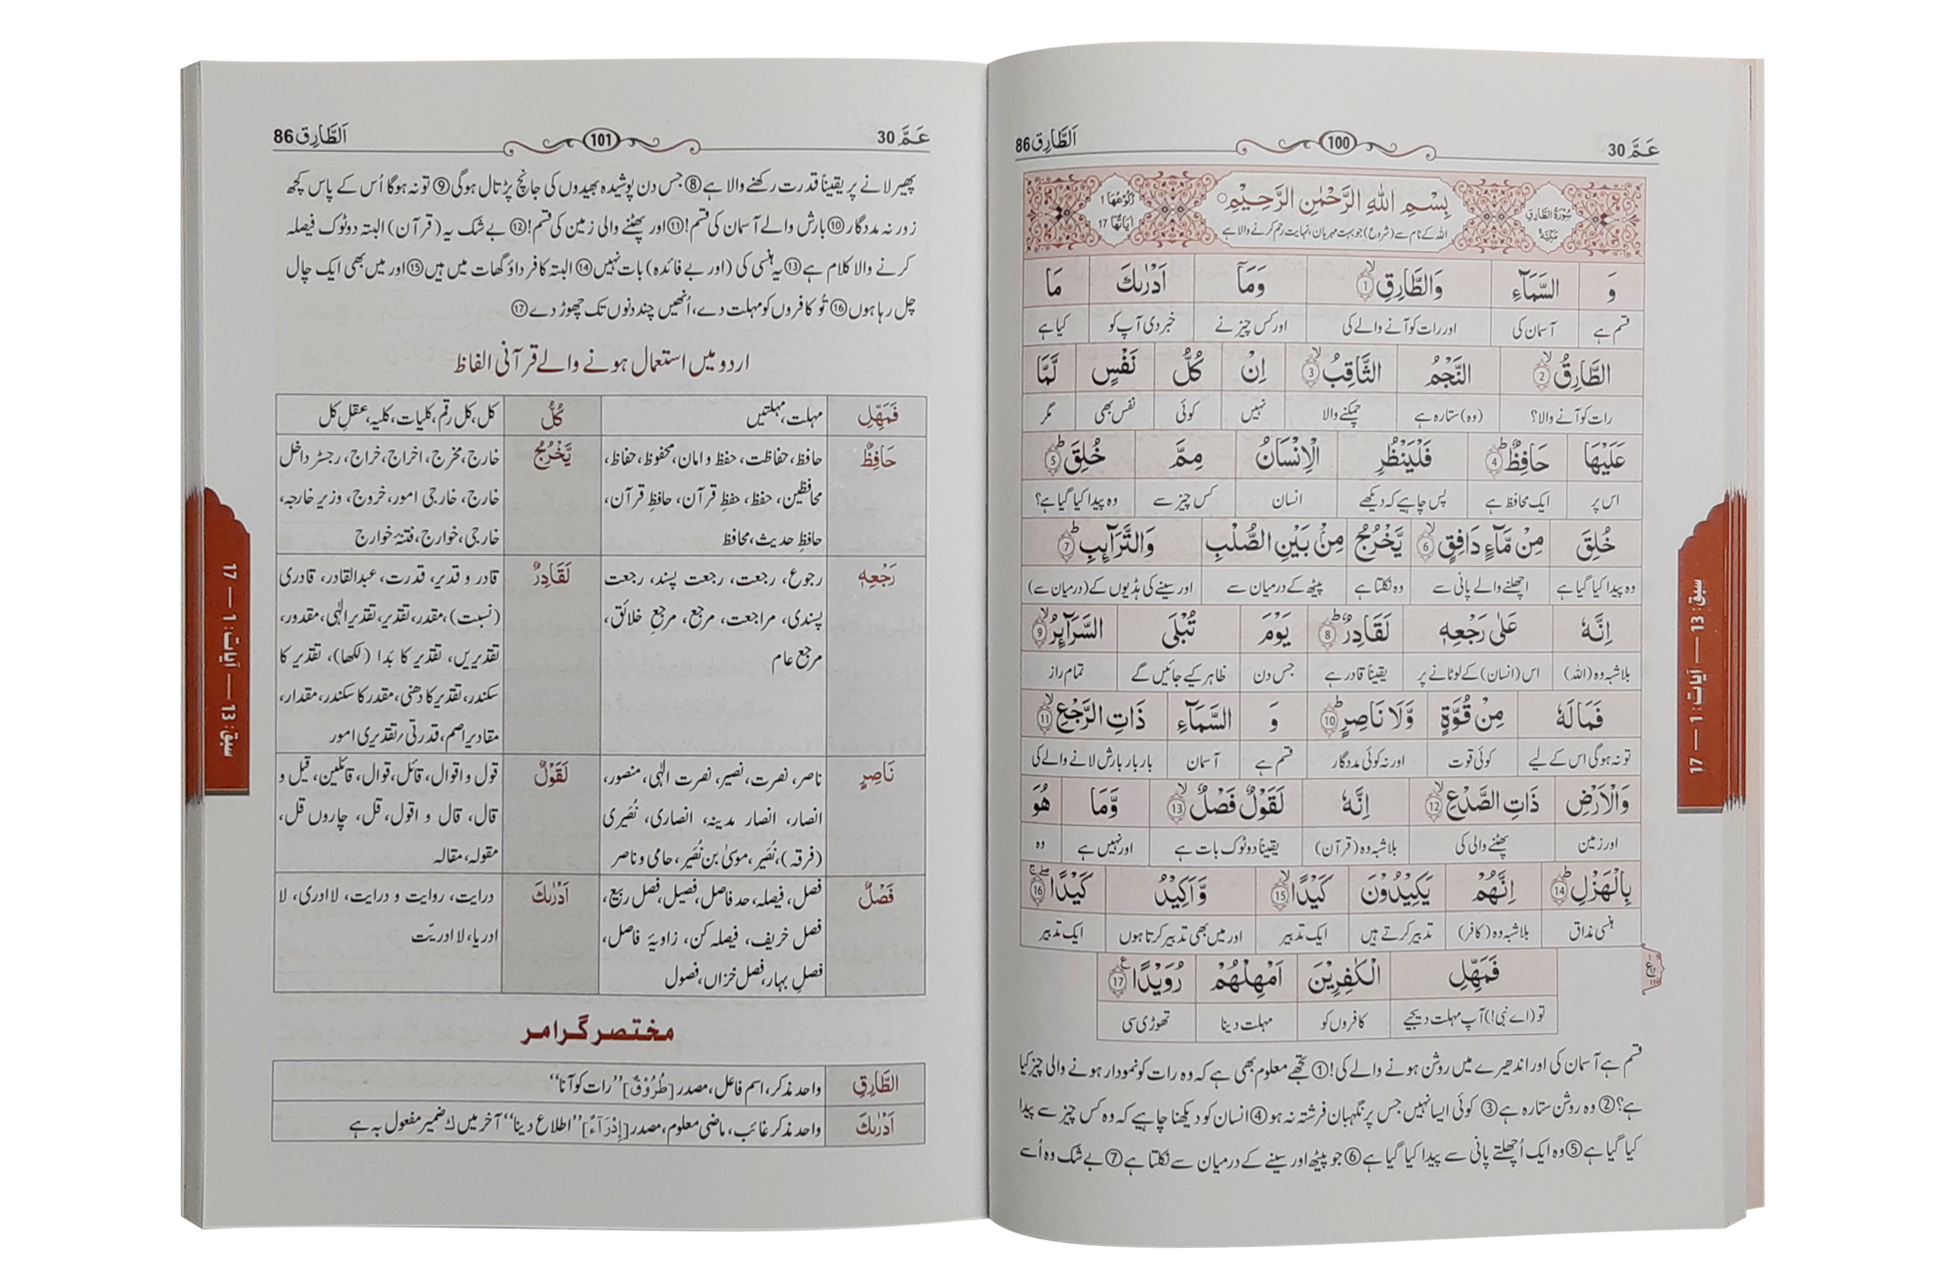 عَمَّ 30
100
اَلطَّارِق 86
سُوْرَةُ الطَّارِقِ مَكِّيَّةٌ
بِسْمِ اللهِ الرَّحْمٰنِ الرَّحِيْمِ
اللہ کے نام سے (شروع) جو بہت مہربان، نہایت رحم کرنے والا ہے
رُكُوْعُهَا 1
اٰيَاتُهَا 17
وَ السَّمَآءِ وَالطَّارِقِ ① وَمَآ اَدْرٰىكَ مَا
قسم ہے آسمان کی اور رات کو آنے والے کی اور کس چیز نے خبر دی آپ کو کیا ہے
الطَّارِقُ ② النَّجْمُ الثَّاقِبُ ③ اِنْ كُلُّ نَفْسٍ لَّمَّا
رات کو آنے والا؟ (وہ) ستارہ ہے چمکنے والا نہیں کوئی نفس بھی مگر
عَلَيْهَا حَافِظٌ ④ فَلْيَنْظُرِ الْاِنْسَانُ مِمَّ خُلِقَ ⑤
اس پر ایک محافظ ہے پس چاہیے کہ دیکھے انسان کس چیز سے وہ پیدا کیا گیا ہے؟
خُلِقَ مِنْ مَّآءٍ دَافِقٍ ⑥ يَّخْرُجُ مِنْۢ بَيْنِ الصُّلْبِ وَالتَّرَآئِبِ ⑦
وہ پیدا کیا گیا ہے اچھلنے والے پانی سے وہ نکلتا ہے پیٹھ کے درمیان سے اور سینے کی ہڈیوں کے (درمیان سے)
اِنَّهٗ عَلٰى رَجْعِهٖ لَقَادِرٌ ⑧ يَوْمَ تُبْلَى السَّرَآئِرُ ⑨
بلاشبہ وہ (اللہ) اس (انسان) کے لوٹانے پر یقیناً قادر ہے جس دن ظاہر کیے جائیں گے تمام راز
فَمَا لَهٗ مِنْ قُوَّةٍ وَّلَا نَاصِرٍ ⑩ وَ السَّمَآءِ ذَاتِ الرَّجْعِ ⑪
تو نہ ہوگی اس کے لیے کوئی قوت اور نہ کوئی مددگار قسم ہے آسمان بار بار بارش لانے والے کی
وَالْاَرْضِ ذَاتِ الصَّدْعِ ⑫ اِنَّهٗ لَقَوْلٌ فَصْلٌ ⑬ وَّمَا هُوَ
اور زمین پھٹنے والی کی بلاشبہ وہ (قرآن) یقیناً دوٹوک بات ہے اور نہیں ہے وہ
بِالْهَزْلِ ⑭ اِنَّهُمْ يَكِيْدُوْنَ كَيْدًا ⑮ وَّاَكِيْدُ كَيْدًا ⑯
ہنسی مذاق بلاشبہ وہ (کافر) تدبیر کرتے ہیں ایک تدبیر اور میں بھی تدبیر کرتا ہوں ایک تدبیر
فَمَهِّلِ الْكٰفِرِيْنَ اَمْهِلْهُمْ رُوَيْدًا ⑰
تو (اے نبی!) آپ مہلت دیجیے کافروں کو مہلت دینا تھوڑی سی
قسم ہے آسمان کی اور اندھیرے میں روشن ہونے والے کی! ① تجھے معلوم بھی ہے کہ وہ رات کو نمودار ہونے والی چیز کیا
ہے؟ ② وہ روشن ستارہ ہے ③ کوئی ایسا نہیں جس پر نگہبان فرشتہ نہ ہو ④ انسان کو دیکھنا چاہیے کہ وہ کس چیز سے پیدا
کیا گیا ہے ⑤ وہ ایک اُچھلتے پانی سے پیدا کیا گیا ہے ⑥ جو پیٹھ اور سینے کے درمیان سے نکلتا ہے ⑦ بے شک وہ اُسے
سبق: 13 — آیات: 1 — 17
عَمَّ 30
101
اَلطَّارِق 86
پھیر لانے پر یقیناً قدرت رکھنے والا ہے ⑧ جس دن پوشیدہ بھیدوں کی جانچ پڑتال ہوگی ⑨ تو نہ ہوگا اُس کے پاس کچھ
زور نہ مددگار ⑩ بارش والے آسمان کی قسم! ⑪ اور پھٹنے والی زمین کی قسم! ⑫ بے شک یہ (قرآن) البتہ دوٹوک فیصلہ
کرنے والا کلام ہے ⑬ یہ ہنسی کی (اور بے فائدہ) بات نہیں ⑭ البتہ کافر داؤ گھات میں ہیں ⑮ اور میں بھی ایک چال
چل رہا ہوں ⑯ تُو کافروں کو مہلت دے، اُنھیں چند دنوں تک چھوڑ دے ⑰
اردو میں استعمال ہونے والے قرآنی الفاظ
فَمَهِّلِ مہلت، مہلتیں كُلُّ کل، کل رقم، کلیات، کلیہ، عقلِ کل
حَافِظٌ حافظ، حفاظت، حفظ و امان، محفوظ، حفاظ، يَّخْرُجُ خارج، مخرج، اخراج، خراج، رجسٹر داخل
محافظین، حفظ، حفظِ قرآن، حافظِ قرآن، خارج، خارجی امور، خروج، وزیر خارجہ،
حافظِ حدیث، محافظ خارجی، خوارج، فتنۂ خوارج
رَجْعِهٖ رجوع، رجعت، رجعت پسند، رجعت لَقَادِرٌ قادر و قدیر، قدرت، عبدالقادر، قادری
پسندی، مراجعت، مرجع، مرجعِ خلائق، (نسبت)، مقدر، تقدیر، تقدیر الٰہی، مقدور،
مرجع عام تقدیریں، تقدیر کا بدا (لکھا)، تقدیر کا
سکندر، تقدیر کا دھنی، مقدر کا سکندر، مقدار،
مقادیر اصم، قدرتی/ تقدیری امور
نَاصِرٍ ناصر، نصرت، نصیر، نصرت الٰہی، منصور، لَقَوْلٌ قول و اقوال، قائل، قوال، قائلین، قیل و
انصار، انصار مدینہ، انصاری، نُصَیری قال، قال و اقول، قل، چاروں قل،
(فرقہ)، نُصَیر، موسیٰ بن نُصَیر، حامی و ناصر مقولہ، مقالہ
فَصْلٌ فصل، فیصلہ، حد فاصل، فصیل، فصل ربیع، اَدْرٰىكَ درایت، روایت و درایت، لا ادری، لا
فصل خریف، فیصلہ کن، زاویۂ فاصل، ادریا، لا ادریّت
فصلِ بہار، فصل خزاں، فصول
مختصر گرامر
الطَّارِقِ واحد مذکر، اسم فاعل، مصدر [طُرُوْقٌ] ”رات کو آنا“
اَدْرٰىكَ واحد مذکر غائب، ماضی معلوم، مصدر [اِدْرَآءٌ] ”اطلاع دینا“ آخر میں ك ضمیر مفعول بہ ہے
سبق: 13 — آیات: 1 — 17